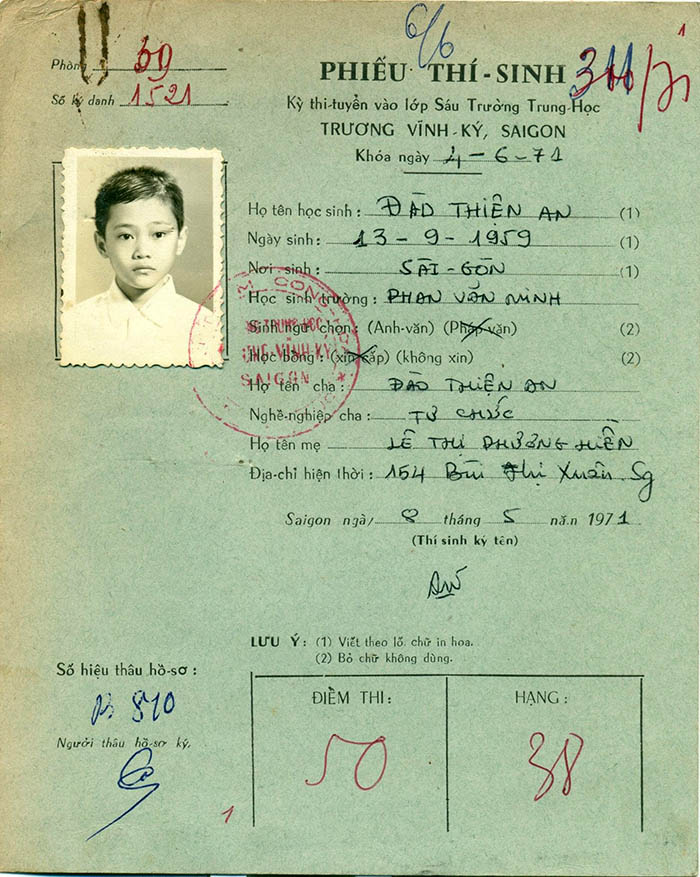 6/6
1
Phòng 39
Số ký danh 1521
PHIẾU THÍ-SINH
Kỳ thi-tuyển vào lớp Sáu Trường Trung-Học
TRƯƠNG VĨNH-KÝ, SAIGON
Khóa ngày 4-6-71
Họ tên học sinh: ĐÀO THIỆN AN (1)
Ngày sinh: 13-9-1959 (1)
Nơi sinh: SÀI-GÒN (1)
Học sinh trường: PHAN VĂN MINH
Sinh ngữ chọn: (Anh-văn) (Pháp-văn) (2)
Học bổng: (xin cấp) (không xin) (2)
Họ tên cha: ĐÀO THIỆN AN
Nghề-nghiệp cha: TƯ CHỨC
Họ tên mẹ LÊ THỊ PHƯƠNG HIỀN
Địa-chỉ hiện thời: 154 Bùi Thị Xuân Sg
SAIGON
Saigon ngày 8 tháng 5 năm 1971
(Thí sinh ký tên)
LƯU Ý: (1) Viết theo lối chữ in hoa.
(2) Bỏ chữ không dùng.
Số hiệu thâu hồ-sơ:
810
Người thâu hồ-sơ ký,
ĐIỂM THI: HẠNG:
50 38
1